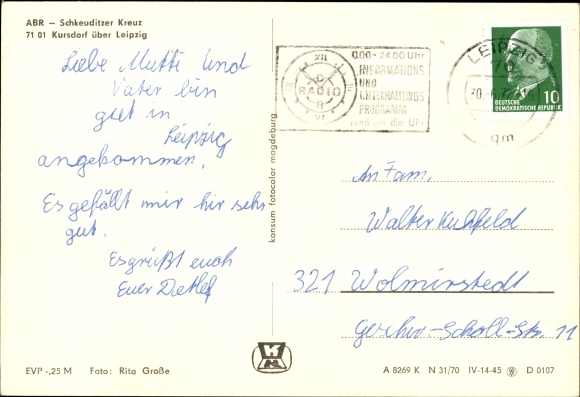 ABR – Schkeuditzer Kreuz
71 01 Kursdorf über Leipzig
Liebe Mutti und
Vater bin
gut in
Leipzig
angekommen.
Es gefällt mir hir sehr
gut.
Es grüßt euch
Euer Detlef
EVP -,25 M Foto: Rita Große
konsum fotocolor magdeburg
XII
III
VI
IX
RADIO
DDR
0.00 - 24.00 Uhr
INFORMATIONS
UND
UNTERHALTUNGS
PROGRAMM
rund um die Uhr
LEIPZIG
70
qm
10
DEUTSCHE
DEMOKRATISCHE REPUBLIK
An Fam.
Walter
321 Wolmirstedt
Geschw-Scholl-Str. 11
A 8269 K N 31/70 IV-14-45 D 0107